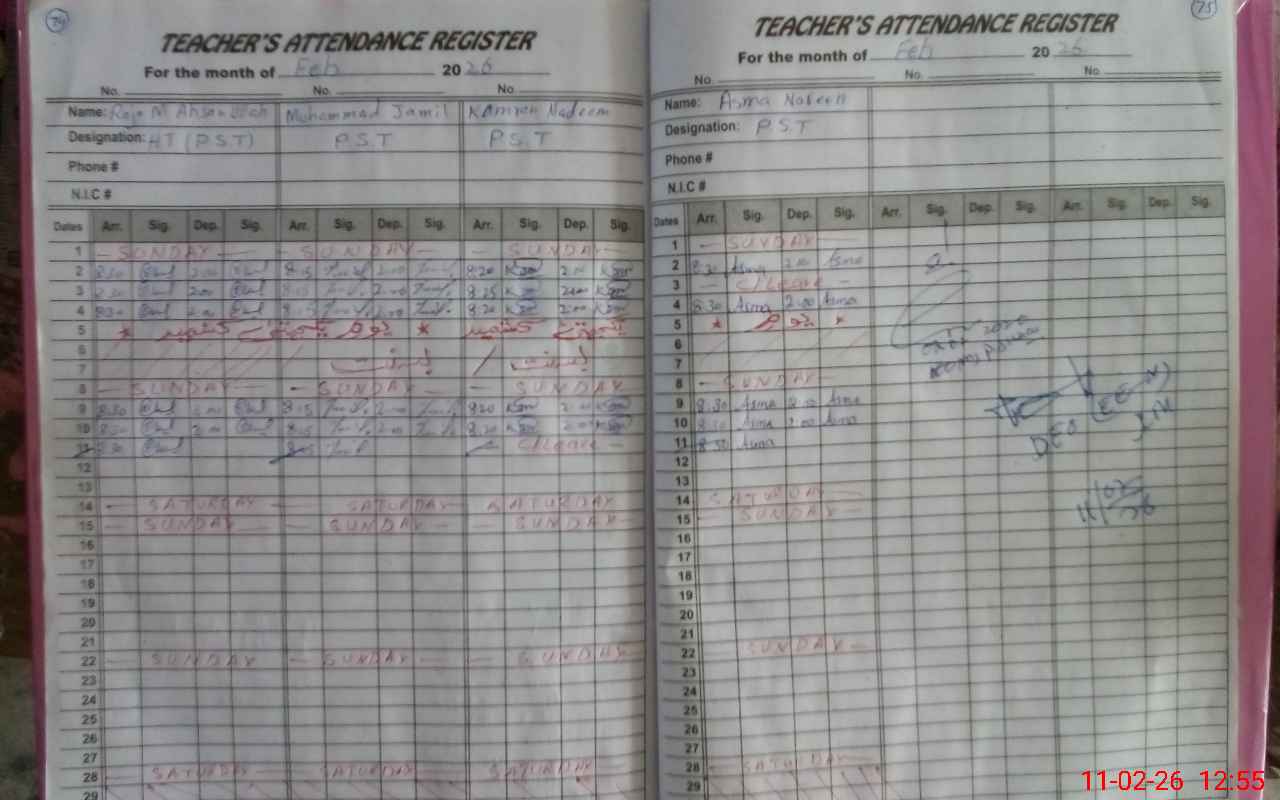 74
TEACHER'S ATTENDANCE REGISTER
For the month of Feb 2026
No. No. No.
Name: Raja M Ahsan Muhammad Jamil Kamran Nadeem
Designation: HT (P.S.T) P.S.T P.S.T
Phone #
N.I.C #
Dates Arr. Sig. Dep. Sig. Arr. Sig. Dep. Sig. Arr. Sig. Dep. Sig.
1 - SUNDAY - - SUNDAY - - SUNDAY -
2 8:30 2:00 8:15 2:00 8:20 2:00
3 8:30 2:00 8:15 2:00 8:25 2:00
4 8:30 2:00 8:15 2:00 8:20 2:00
5 * یوم یکجہتی کشمیر * یکجہتی کشمیر
6
7 بسنت / بسنت
8 - SUNDAY - - SUNDAY - - SUNDAY
9 8:30 2:00 8:15 2:00 8:20 2:00
10 8:30 2:00 8:15 2:00 8:20 2:00
11 8:30 8:15 C/Leave -
12
13
14 - SATURDAY - SATURDAY - SATURDAY
15 - SUNDAY - - SUNDAY - - SUNDAY
16
17
18
19
20
21
22 - SUNDAY - SUNDAY - - SUNDAY
23
24
25
26
27
28 - SATURDAY - SATURDAY - SATURDAY
29
75
TEACHER'S ATTENDANCE REGISTER
For the month of Feb 2026
No. No. No.
Name: Asma Noreen
Designation: P.S.T
Phone #
N.I.C #
Dates Arr. Sig. Dep. Sig. Arr. Sig. Dep. Sig. Arr. Sig. Dep. Sig.
1 - SUNDAY -
2 8:30 Asma 2:00 Asma
3 - C/Leave -
4 8:30 Asma 2:00 Asma
5 * یوم *
6
7
8 - SUNDAY -
9 8:30 Asma 2:00 Asma
10 8:30 Asma 2:00 Asma
11 8:30 Asma
12
13
14 SATURDAY -
15 - SUNDAY -
16
17
18
19
20
21
22 SUNDAY -
23
24
25
26
27
28 - SATURDAY -
29
DEO (EE-M)
11/02/26
11-02-26 12:55